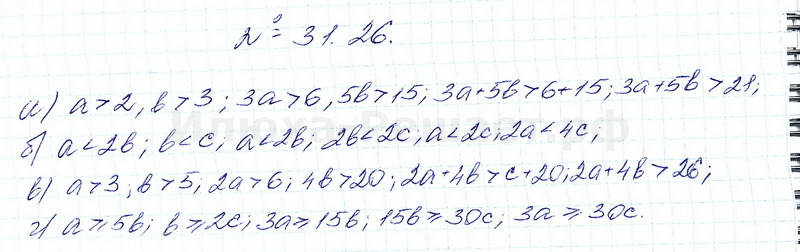 № 31.26.
а) a > 2, b > 3; 3a > 6, 5b > 15; 3a + 5b > 6 + 15; 3a + 5b > 21;
б) a < 2b; b < c; a < 2b; 2b < 2c; a < 2c; 2a < 4c;
в) a > 3; b > 5; 2a > 6; 4b > 20; 2a + 4b > c + 20; 2a + 4b > 26;
г) a ⩾ 5b; b ⩾ 2c; 3a ⩾ 15b; 15b ⩾ 30c; 3a ⩾ 30c.